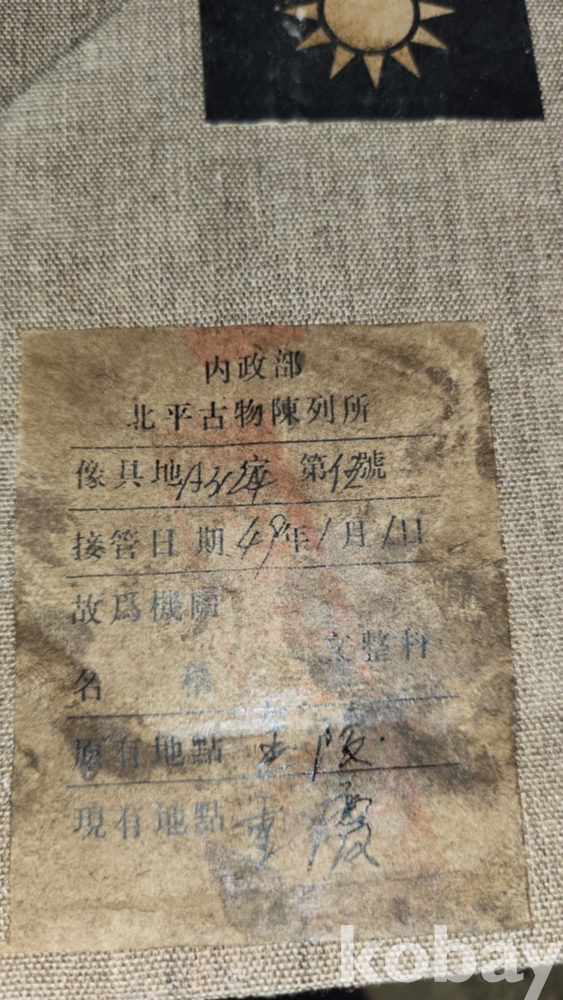 内政部
北平古物陳列所
傢具地 第伍號
接管日期49年1月1日
故爲機關
文整科
名稱
原有地點
現有地點 重慶
kobay